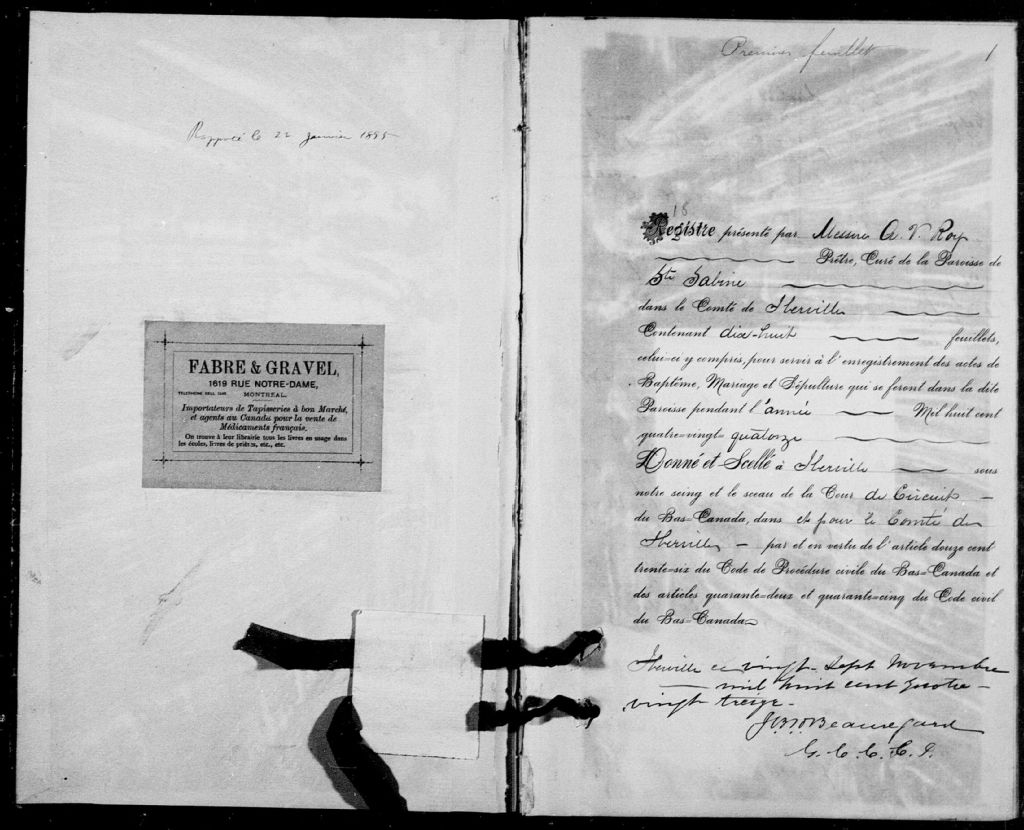 Rapporté le 22 janvier 1895
FABRE & GRAVEL,
1619 RUE NOTRE-DAME,
TELEPHONE BELL
MONTREAL.
Importateurs de Tapisseries à bon Marché,
et agents au Canada pour la vente de
Médicaments français.
On trouve à leur librairie tous les livres en usage dans
les écoles, livres de prières, etc., etc.
Premier feuillet 1
18
Registre présenté par Messire A. V. Roy
Prêtre, Curé de la Paroisse de
Ste Sabine
dans le Comté de Iberville
Contenant dix-huit feuillets,
celui=ci y compris, pour servir à l'enregistrement des actes de
Baptême, Mariage et Sépulture qui se feront dans la dite
Paroisse pendant l'année Mil huit cent
quatre=vingt= quatorze
Donné et Scellé à Iberville sous
notre seing et le sceau de la Cour de Circuit
du Bas=Canada, dans et pour le Comté de
Iberville par et en vertu de l'article douze cent
trente=six du Code de Procédure civile du Bas=Canada et
des articles quarante=deux et quarante=cinq du Code civil
du Bas=Canada
Iberville ce vingt-sept Novembre
mil huit cent quatre-
vingt treize.
Beauregard
G. C. C. C. I.